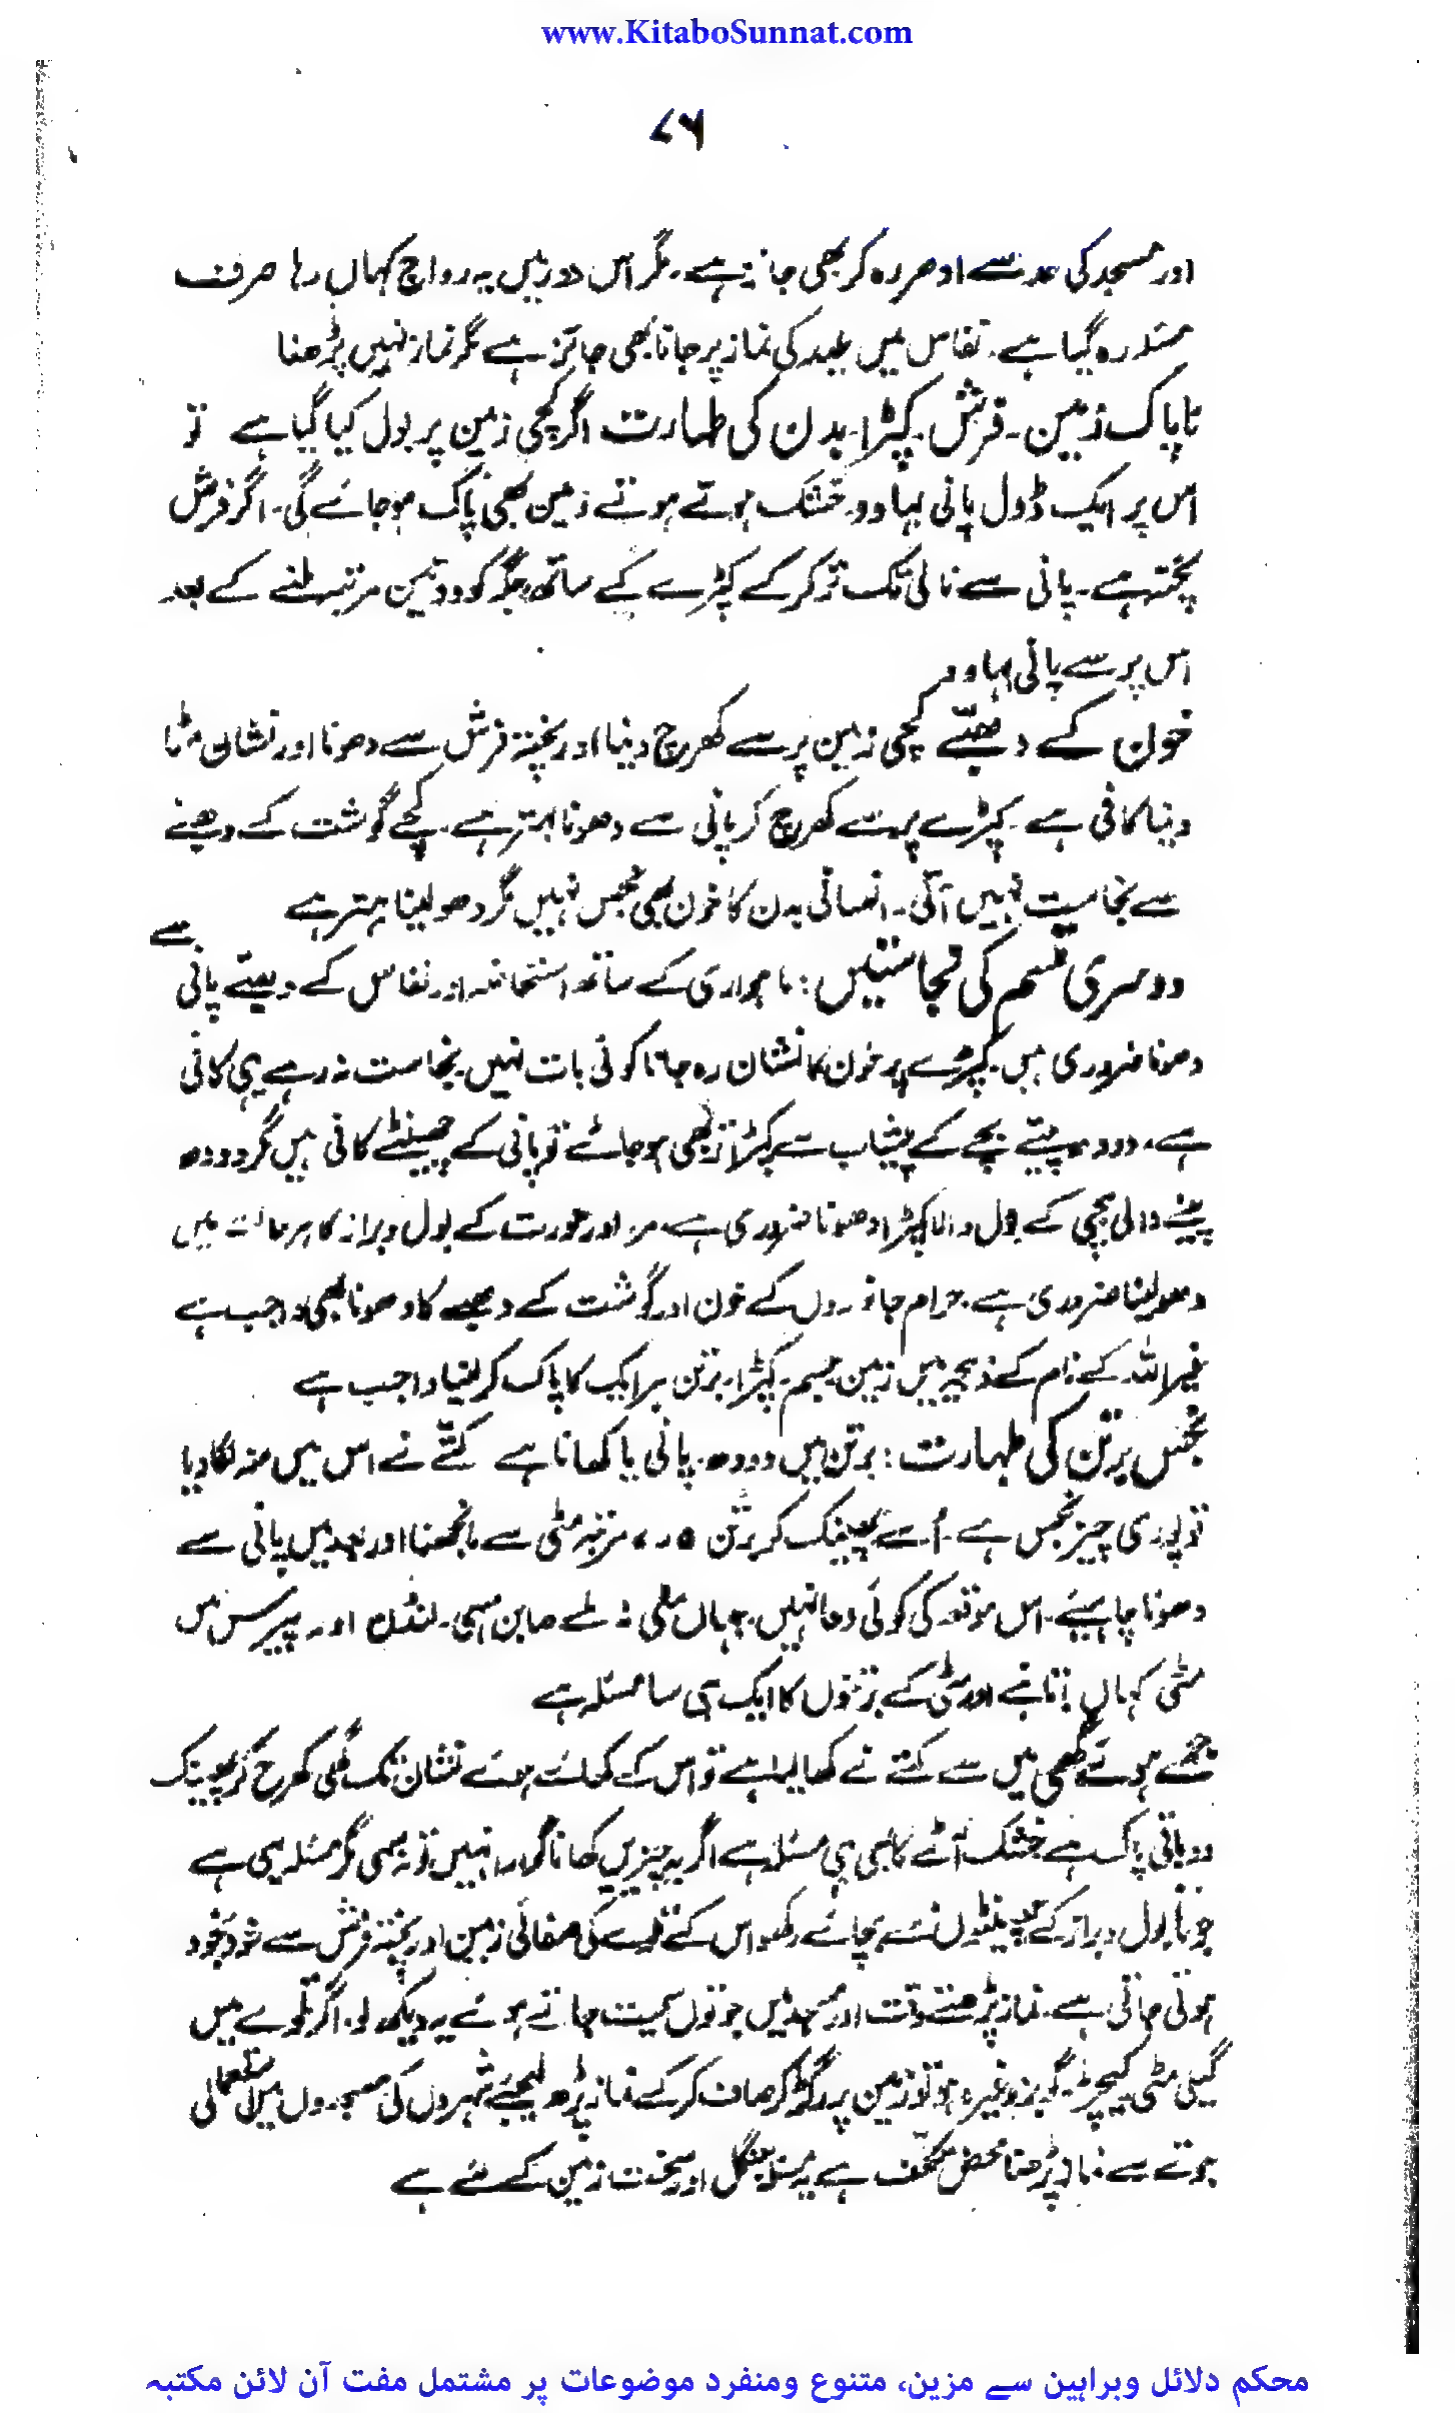 www.KitaboSunnat.com
۷۶
اور مسجد کی حد سے ادھر رہ کر بھی جائز ہے۔ مگر اس دور میں یہ رواج کہاں رہا صرف
مسئلہ رہ گیا ہے۔ نفاس میں عید کی نماز پر جانا بھی جائز ہے مگر نماز نہیں پڑھنا
ناپاک زمین۔ فرش۔ کپڑا۔ بدن کی طہارت اگر کچی زمین پر بول کیا گیا ہے تو
اس پر ایک ڈول پانی بہا دو۔ خشک ہوتے ہوتے زمین بھی پاک ہو جائے گی۔ اگر فرش
پختہ ہے۔ پانی سے نالی تک تر کر کے کپڑے کے ساتھ جگہ کو دو تین مرتبہ ملنے کے بعد
اس پر سے پانی بہا دو
خون کے دھبّے کچی زمین پر سے کھرچ دینا اور پختہ فرش سے دھونا اور نشان مٹا
دینا کافی ہے۔ کپڑے پر سے کھرچ کر پانی سے دھونا بہتر ہے۔ کچے گوشت کے دھبے
سے نجاست نہیں آتی۔ انسانی بدن کا خون بھی نجس نہیں مگر دھو لینا بہتر ہے
دوسری قسم کی نجاستیں: ماہواری کے ساتھ استحاضہ اور نفاس کے دھبّے پانی سے
دھونا ضروری ہیں۔ کپڑے پر خون کا نشان رہ جانا کوئی بات نہیں۔ نجاست نہ رہے یہی کافی
ہے۔ دودھ پیتے بچے کے پیشاب سے کپڑا تر بھی ہو جائے تو پانی کے چھینٹے کافی ہیں مگر دودھ
پینے والی بچی کے بول والا کپڑا دھونا ضروری ہے۔ مرد اور عورت کے بول و براز کا ہر حالت میں
دھو لینا ضروری ہے۔ حرام جانوروں کے خون اور گوشت کے دھبے کا دھونا بھی واجب ہے
غیر اللہ کے نام کے ذبیحہ میں زمین۔ جسم۔ کپڑا۔ برتن ہر ایک کا پاک کر لینا واجب ہے
نجس برتن کی طہارت: برتن میں دودھ۔ پانی یا کھانا ہے کتّے نے اس میں منہ لگا دیا
تو پوری چیز نجس ہے۔ اُسے پھینک کر برتن مرتبہ مٹی سے مانجھنا اور بعد میں پانی سے
دھونا چاہیئے۔ اس موقعہ کی کوئی دعا نہیں۔ جہاں مٹی نہ ملے صابن سہی۔ لنڈن اور پیرس میں
مٹی کہاں! تانبے اور مٹی کے برتنوں کا ایک ہی سا مسئلہ ہے
جمے ہوئے گھی میں سے کتے نے کھا لیا ہے تو اس کے کھائے ہوئے نشان تک گھی کھرچ کر پھینک
دو باقی پاک ہے خشک آٹے کا بھی یہی مسئلہ ہے اگر یہ چیزیں کھانا گوارا نہیں تو نہ سہی مگر مسئلہ یہی ہے
جوتا بول و براز کے چھینٹوں سے بچائے رکھو اس کے تلوے کی صفائی زمین اور پختہ فرش سے خود بخود
ہوتی جاتی ہے۔ نماز پڑھتے وقت اور مسجد میں جوتوں سمیت جاتے ہوئے یہ دیکھ لو۔ اگر تلوے میں
گیلی مٹی کیچڑ۔ گوبر وغیرہ ہو تو زمین پر رگڑ کر صاف کر کے نماز پڑھ لیجئے شہروں کی مسجدوں میں استعمالی
جوتے سے نماز پڑھنا محض تکلّف ہے یہ مسئلہ جنگل اور سخت زمین کے لئے ہے
محکم دلائل وبراہین سے مزین، متنوع ومنفرد موضوعات پر مشتمل مفت آن لائن مکتبہ